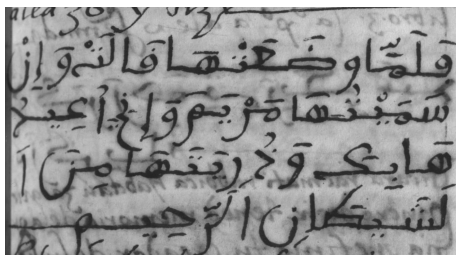 فلما وضعتها قالت وان
سميتها مريم واني اعيذ
ها بك وذريتها من ا
لشيطان الرجيم